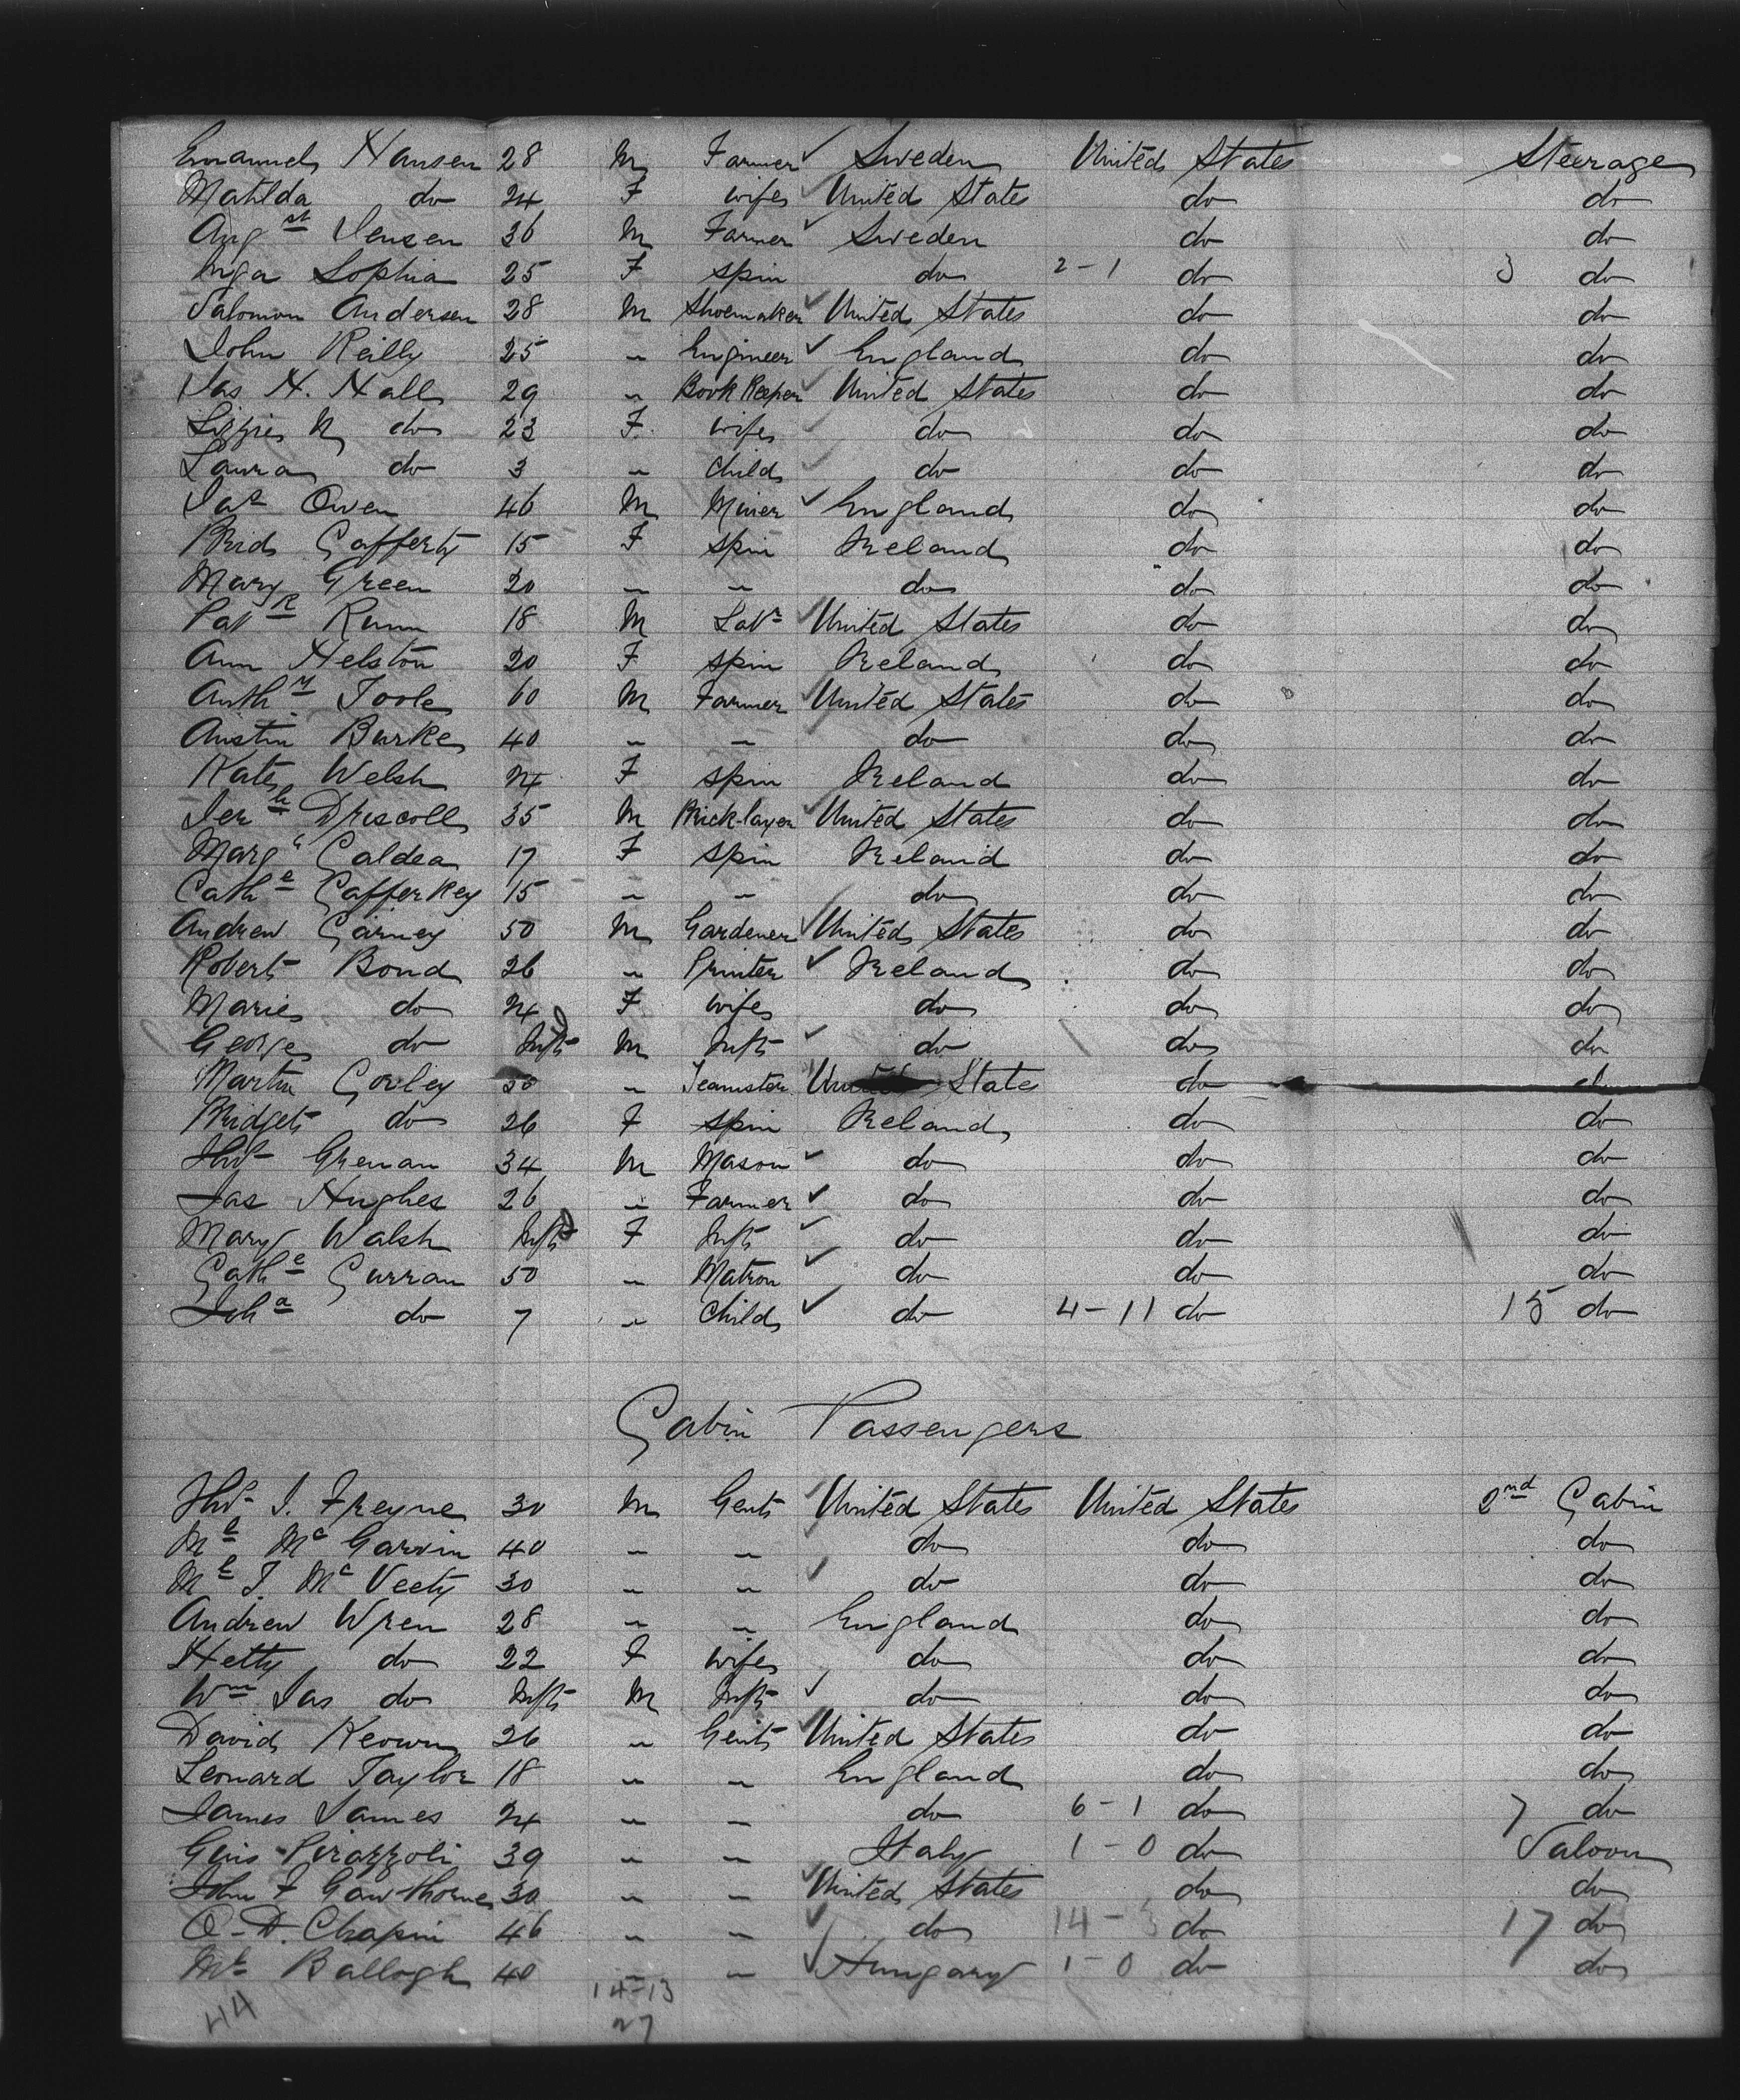 Emanuel Hansen 28 M Farmer ✓ Sweden United States Steerage
Matilda do 24 F wife ✓ United States do do
Aug st Jensen 36 M Farmer ✓ Sweden do do
Inga Sophia 25 F spin do 2-1 do 3 do
Salomon Andersen 28 M Shoemaker ✓ United States do do
John Reilly 25 " Engineer ✓ England do do
Jas H. Hall 29 " Book Keeper ✓ United States do do
Lizzie N do 23 F. wife ✓ do do do
Laura do 3 " Child ✓ do do do
Jas Owen 46 M Miner ✓ England do do
Brid Cafferty 15 F spin Ireland do do
Mary Green 20 " " do do do
Patk 18 M Labr ✓ United States do do
Ann Helston 20 F spin Ireland do do
Anthy Toole 60 M Farmer ✓ United States do do
Austin Burke 40 " " do do do
Kate Welsh 24 F spin Ireland do do
Jerh Driscoll 35 M Brick-layer ✓ United States do do
Margt Caldea 17 F spin Ireland do do
Cathe Cafferkey 15 " " do do do
Andrew 50 M Gardener ✓ United States do do
Robert Bond 26 " Printer ✓ Ireland do do
Marie do 24 F wife do do do
George do Inft M Inft ✓ do do do
Martin 30 " Teamster United States do do
Bridget do 26 F spin Ireland do do
Thos Grenan 34 M Mason ✓ do do do
Jas Hughes 26 " Farmer ✓ do do do
Mary Walsh Inft F Inft ✓ do do do
Cathe Curran 50 " Matron ✓ do do do
Joha do 7 " Child ✓ do 4-11 do 15 do
Cabin Passengers
Thos J. Freyne 30 M Gent United States United States 2nd Cabin
Mr McGarvin 40 " " do do do
Mr J. McVeety 30 " " ✓ do do do
Andrew Wren 28 " " England do do
Hetty do 22 F wife do do do
Wm Jas do Inft M Inft ✓ do do do
David Keown 26 " Gent ✓ United States do do
Leonard Taylor 18 " " England do do
James James 24 " " do 6-1 do 7 do
Pirazzoli 39 " " Italy 1-0 do Saloon
John F Gawthorne 30 " " ✓ United States do do
O. D. Chapin 46 " " ✓ do 14-3 do 17 do
Mr Ballogh 40 " " ✓ Hungary 1-0 do do
44 14-13
27